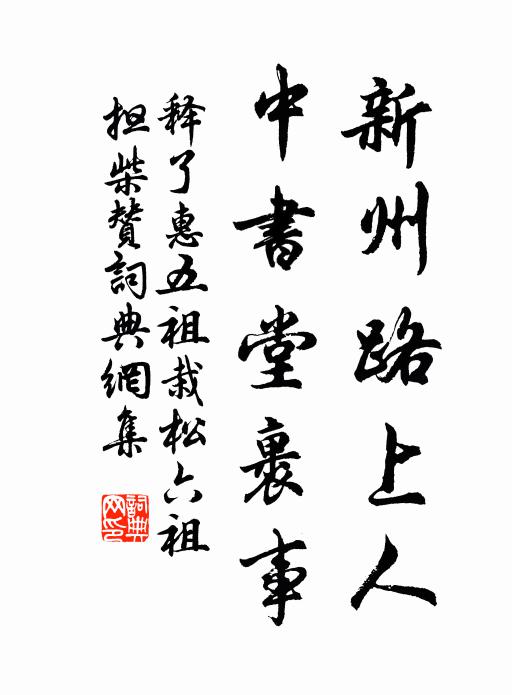 新州路上人
中書堂裏事
释了惠五祖栽松六祖
担柴赞詞典網集
詞典网印